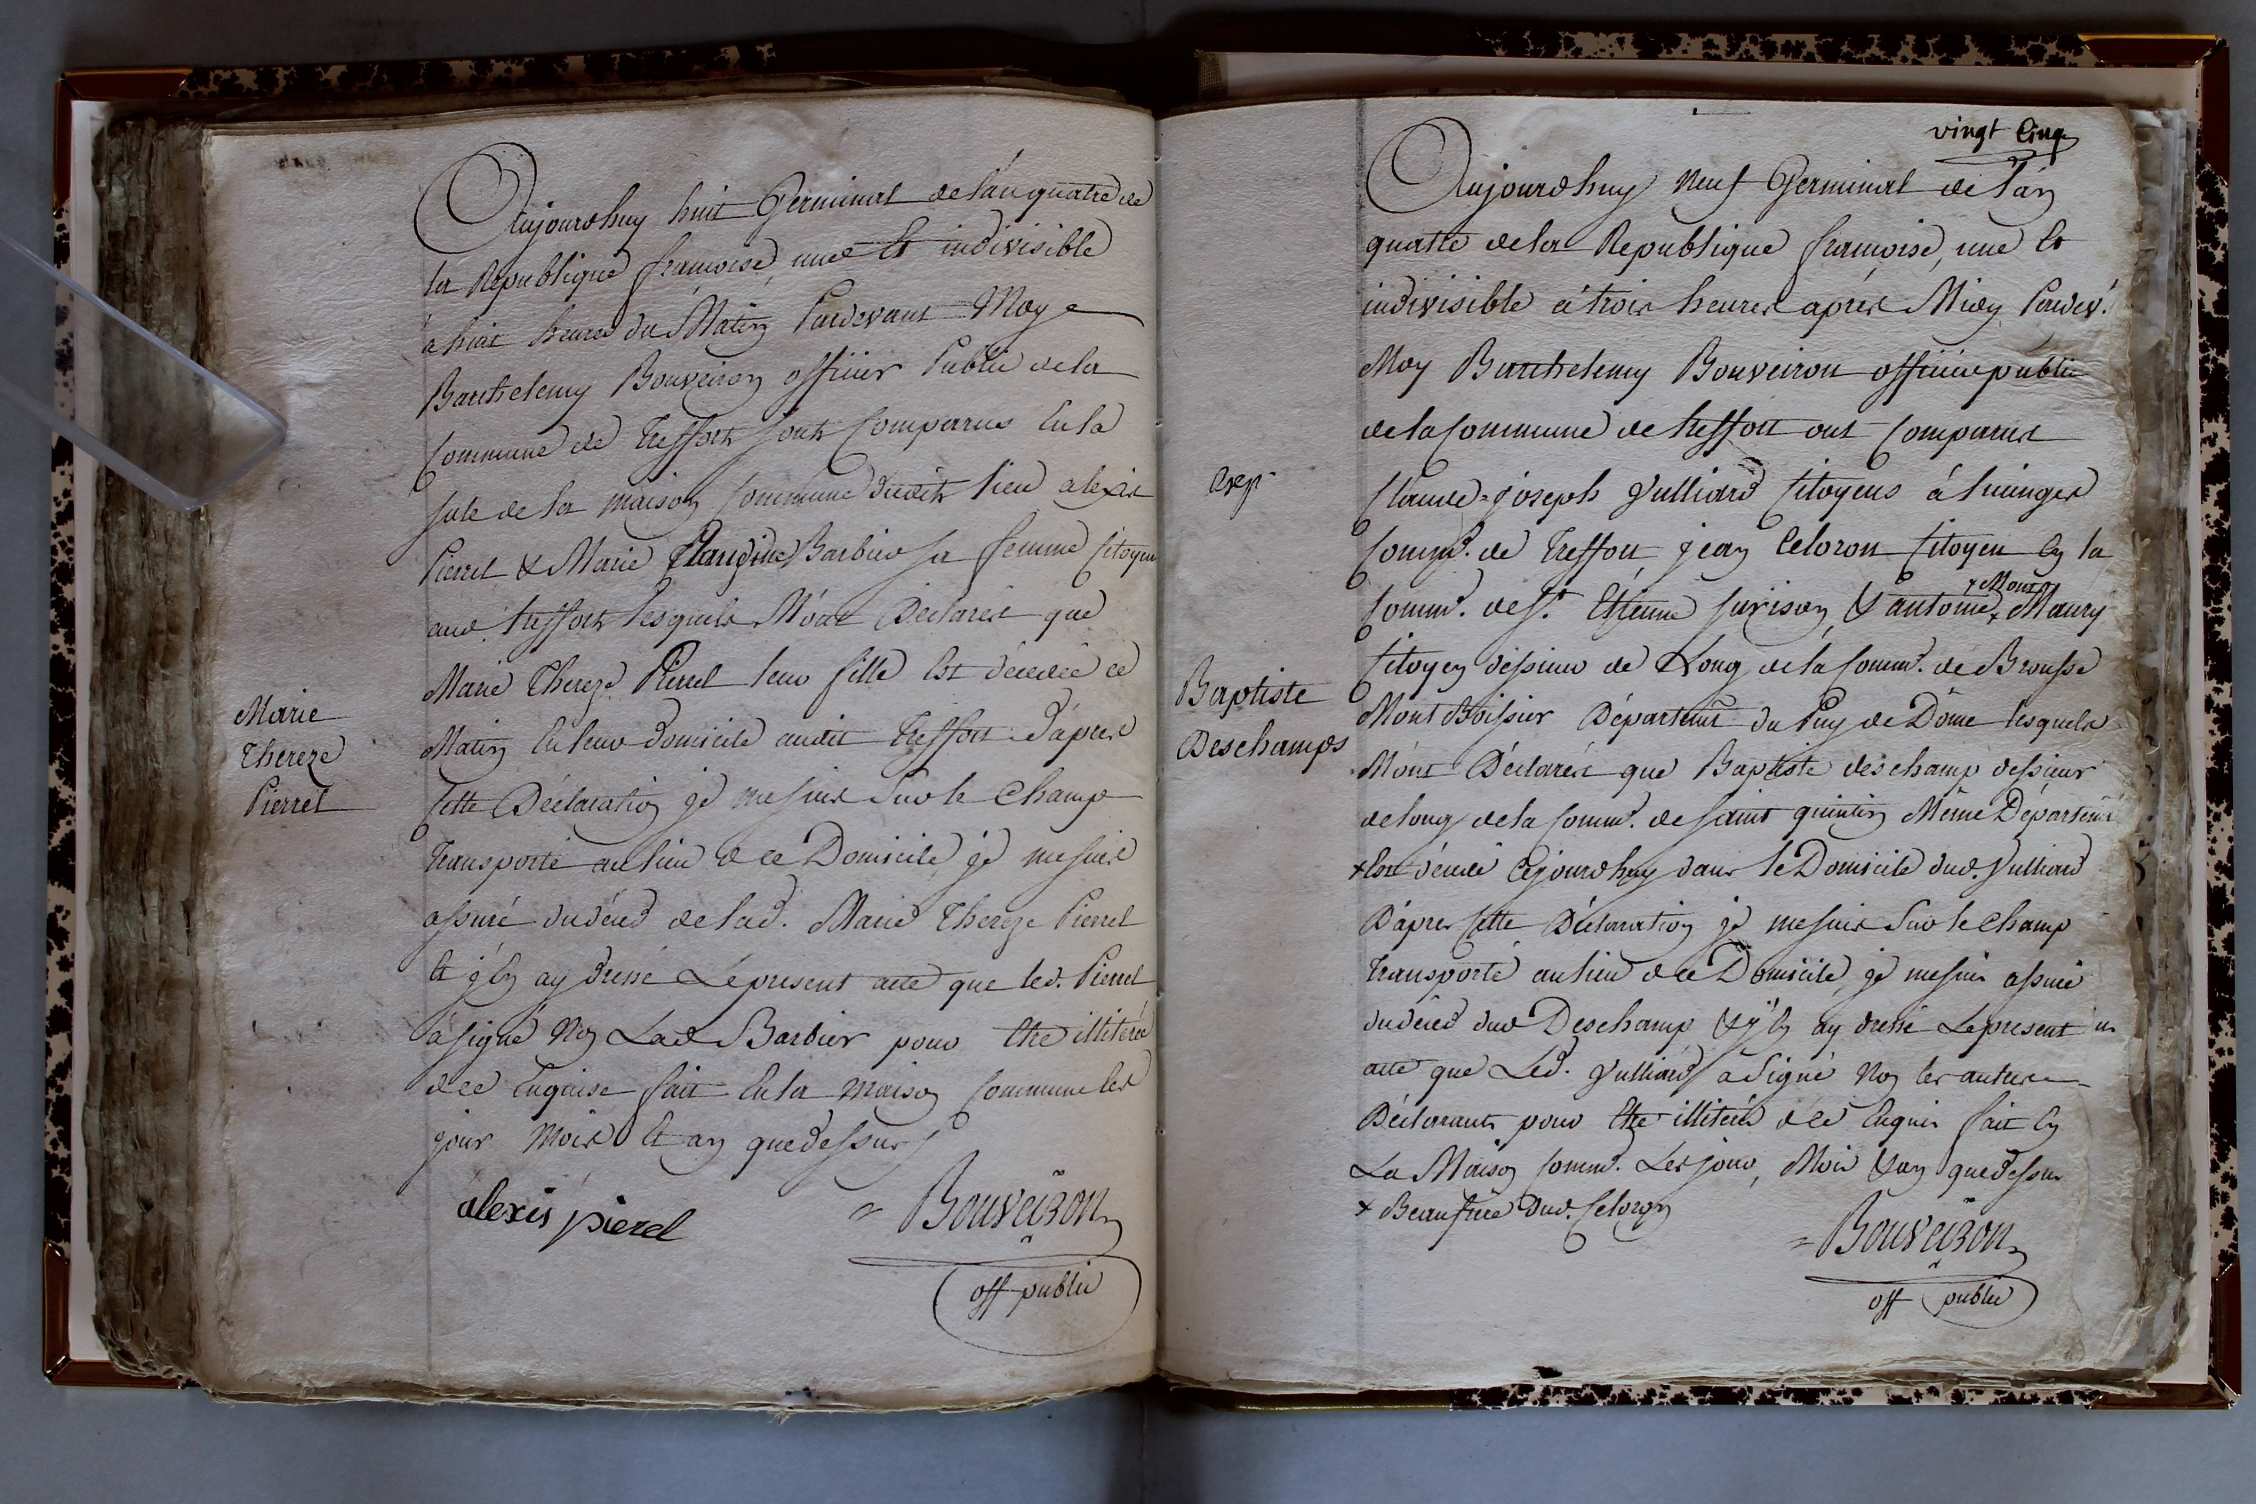 Aujourdhuy huit Germinal de lán quatre de
la Republique francoise, une Et indivisible
à huit heures du Matin Pardevant Moy
Barthelemy Bouveiron officier Public de la
Commune de Treffort sont Comparus En la
sale de la maison Commune dudit lieu alexis
Pierrel & Marie Claudine Barbier sa femme Citoyens
aud. treffort lesquels M'ont Déclarés que
Marie Thereze Pierrel leur fille Est décedée ce
Matin En leur domicile audit Treffort d'apres
Cette Déclaration je me suis Sur le Champ
Transporté au lieu de ce Domicile, je me suis
assuré du déced de lad. Marie Thereze Pierrel
Et j'En ay dressé Le present acte que led. Pierrel
a signé Non Lad. Barbier pour Etre illiterée
de ce Enquise fait En la maison Commune les
jour Mois Et an que dessus
Marie
Thereze
Pierrel
alexis pierel
Bouveiron
off public
vingt Cinq
Aujourdhuy Neuf Germinal de l'án
quatre de la Republique francoise, une Et
indivisible á trois heures aprés Midy Pardev.t
Moy Barthelemy Bouveiron officier public
de la Commune de treffort ont Comparus
Claude=joseph Julliard Citoyens á
Comm.e de Treffort, jean Celoron Citoyen En la
Comm.e de S.t Etienne & antoine x Maury
x Mony
Citoyen de Long de la Comm.e de Brousse
Mont Boissier Départemt du Puy de Dôme lesquels
M'ont Déclarés que Baptiste deschamp
de long de la Comm.e de saint quintin Même Départemt
x Est décedé Cejourdhuy dans le Domicile dud. Julliard
D'apres Cette Déclaration je me suis Sur le Champ
Transporté au lieu de ce Domicile, je me suis assuré
du déced dud Deschamp & j'En ay dressé Le present
acte que Led. Julliard à Signé Non les autres
Déclarants pour Etre illiterés de ce Enquis fait En
La Maison Comm.e Les jour, Mois & an que dessus
x Beaufrere Dud. Celoron
Baptiste
Deschamps
Bouveiron
off public